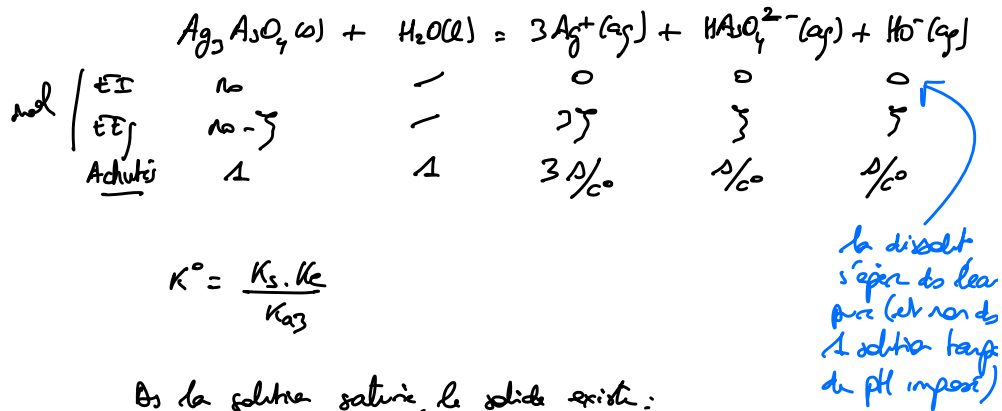 Ag₃AsO₄(s) + H₂O(l) = 3Ag⁺(aq) + HAsO₄²⁻(aq) + HO⁻(aq)
mol
EI n₀ – 0 0 0
EEq n₀-ξ – 3ξ ξ ξ
Activités 1 1 3s/c° s/c° s/c°
la dissolut
s'opère ds l'eau
pure (et non ds
1 solution tampo
de pH imposé)
K° = Ks.Ke / Ka3
Ds la solution saturée, le solide existe :